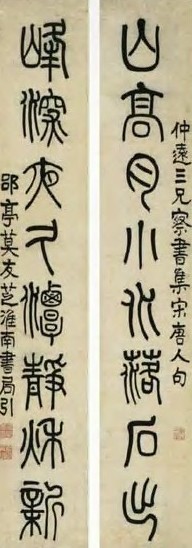 仲遠三兄察書集宋唐人句
山高月小水落石出
峰深夜久潭靜秋新
郘亭莫友芝淮南書局引